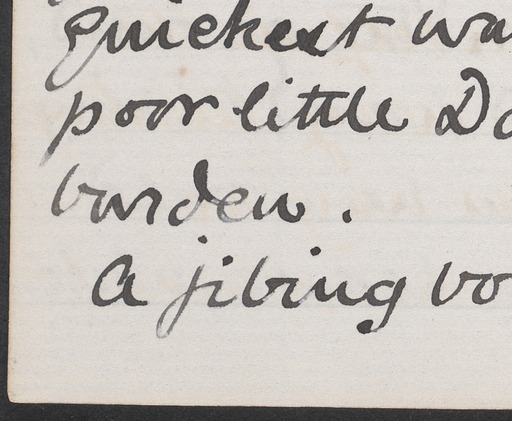 quickest wa
poor little Do
burden.
A jibing vo